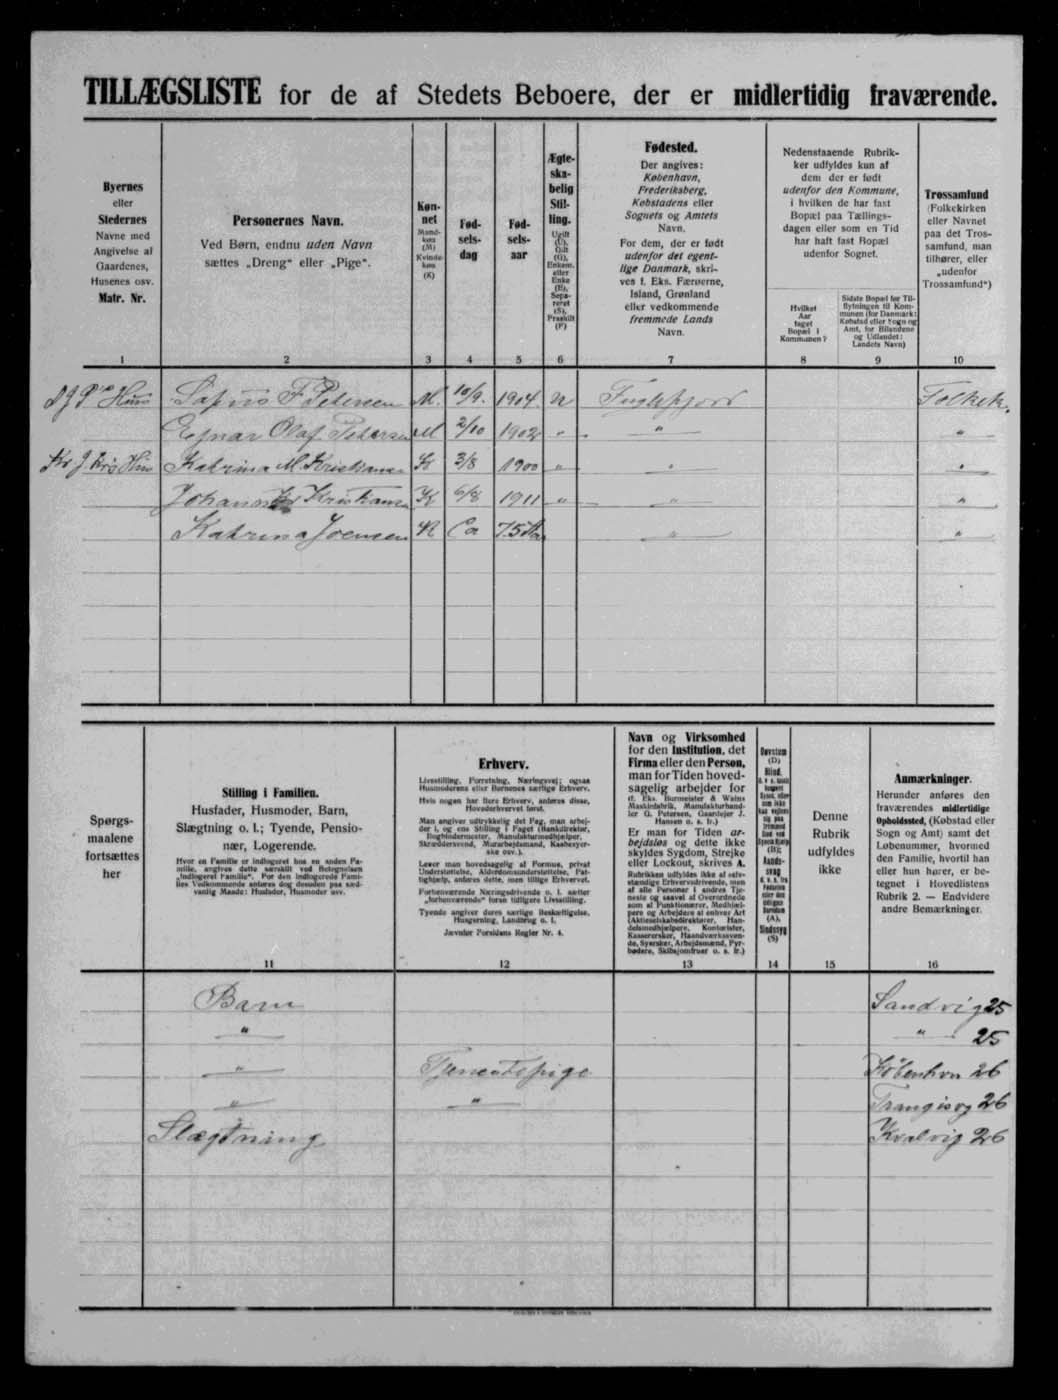 TILLÆGSLISTE for de af Stedets Beboere, der er midlertidig fraværende.
Byernes
eller
Stedernes
Navne med
Angivelse af
Gaardenes,
Husenes osv.
Matr. Nr.
1
Personernes Navn.
Ved Børn, endnu uden Navn
sættes „Dreng“ eller „Pige“.
2
Køn-
net
Mand-
køn
(M)
Kvinde-
køn
(K)
3
Fød-
sels-
dag
4
Fød-
sels-
aar
5
Ægte-
ska-
belig
Stil-
ling.
Ugift
(U),
Gift
(G),
Enkem.
eller
Enke
(E),
Sepa-
reret
(S),
Fraskilt
(F)
6
Fødested.
Der angives:
København,
Frederiksberg,
Købstadens eller
Sognets og Amtets
Navn.
For dem, der er født
udenfor det egent-
lige Danmark, skri-
ves f. Eks. Færøerne,
Island, Grønland
eller vedkommende
fremmede Lands
Navn.
7
Nedenstaaende Rubrik-
ker udfyldes kun af
dem der er født
udenfor den Kommune,
i hvilken de har fast
Bopæl paa Tællings-
dagen eller som en Tid
har haft fast Bopæl
udenfor Sognet.
Hvilket
Aar
taget
Bopæl i
Kommunen?
8
Sidste Bopæl før Til-
flytningen til Kom-
munen (for Danmark:
Købstad eller Sogn og
Amt, for Bilandene
og Udlandet:
Landets Navn)
9
Trossamfund
(Folkekirken
eller Navnet
paa det Tros-
samfund, man
tilhører, eller
„udenfor
Trossamfund“)
10
Hus F Petersen M. 10/9. 1904 U Fuglefjord Folkek.
Ejnar Olaf Petersen M 2/10 1902 " " "
Katrina M. Kristiansen K 3/8 1900 " " "
Kristiansen K 6/8 1911 " " "
Katrina Joensen K Ca 75 Aar " "
Spørgs-
maalene
fortsættes
her
Stilling i Familien.
Husfader, Husmoder, Barn,
Slægtning o. l.; Tyende, Pensio-
nær, Logerende.
Hvor en Familie er indlogeret hos en anden Fa-
milie, angives dette særskilt ved Betegnelsen
„indlogeret Familie“. For den indlogerede Fami-
lies Vedkommende anføres dog desuden paa sæd-
vanlig Maade: Husfader, Husmoder osv.
11
Erhverv.
Livsstilling, Forretning, Næringsvej; ogsaa
Husmoderens eller Børnenes særlige Erhverv.
Hvis nogen har flere Erhverv, anføres disse,
Hovederhvervet først.
Man angiver udtrykkelig det Fag, man arbej-
der i, og ens Stilling i Faget (Bankdirektør,
Bogbindermester, Manufakturmedhjælper,
Skræddersvend, Murarbejdsmand, Kaabesyer-
ske osv.).
Lever man hovedsagelig af Formue, privat
Understøttelse, Alderdomsunderstøttelse, Fat-
tighjælp, anføres dette, men tillige Erhvervet.
Forhenværende Næringsdrivende o. l. sætter
„forhenværende“ foran tidligere Livsstilling.
Tyende angiver deres særlige Beskæftigelse,
Husgerning, Landbrug o. l.
Jævnfør Forsidens Regler Nr. 4.
12
Navn og Virksomhed
for den Institution, det
Firma eller den Person,
man for Tiden hoved-
sagelig arbejder for
(f. Eks. Burmeister & Wains
Maskinfabrik, Manufakturhand-
ler G. Petersen, Gaardejer J.
Hansen o. s. fr.)
Er man for Tiden ar-
bejdsløs og dette ikke
skyldes Sygdom, Strejke
eller Lockout, skrives A.
Rubrikken udfyldes ikke af selv-
stændige Erhvervsdrivende, men
af alle Personer i andres Tje-
neste og saavel af Overordnede
som af Funktionærer, Medhjæl-
pere og Arbejdere af enhver Art
(Aktieselskabsdirektører, Han-
delsmedhjælpere, Kontorister,
Kasserersker, Haandværkssven-
de, Syersker, Arbejdsmænd, Fyr-
bødere, Skibsjomfruer o. s. fr.)
13
Døvstum
(D)
Blind,
Aands-
svag
(A),
Sindssyg
(S)
14
Denne
Rubrik
udfyldes
ikke
15
Anmærkninger.
Herunder anføres den
fraværendes midlertidige
Opholdssted, (Købstad eller
Sogn og Amt) samt det
Løbenummer, hvormed
den Familie, hvortil han
eller hun hører, er be-
tegnet i Hovedlistens
Rubrik 2. — Endvidere
andre Bemærkninger.
16
Barn Sandvig 25
" " 25
" Tjenestepige Københvn 26
" " Trangisvog 26
Slægtning Kvalvig 26